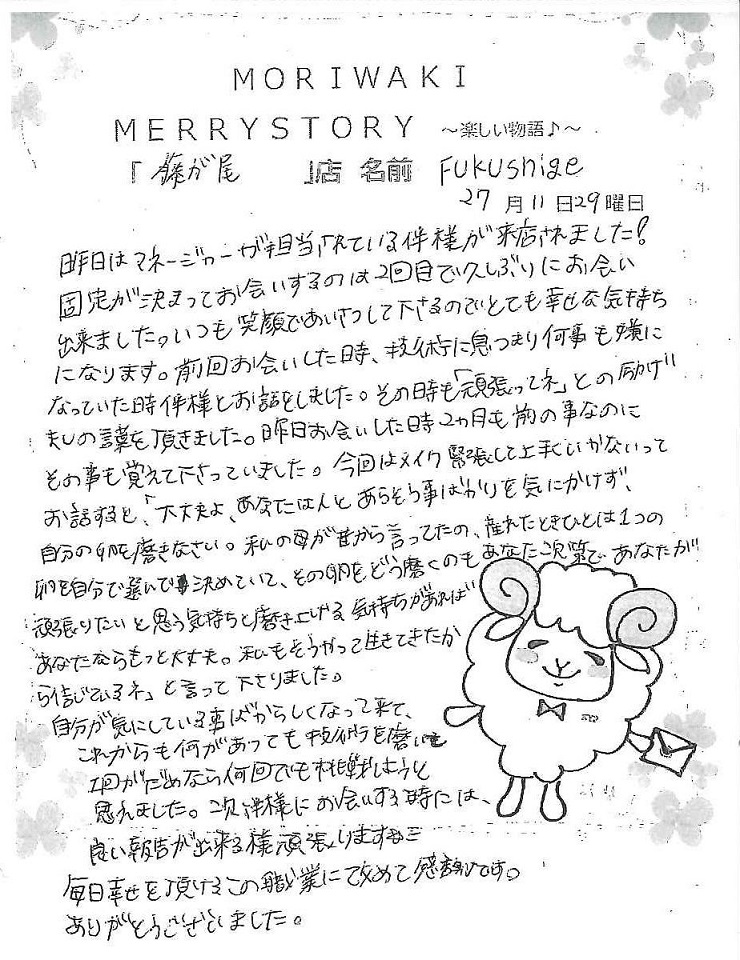 MORIWAKI
MERRYSTORY ～楽しい物語♪～
「藤が尾　　」店 名前 FUKUshige
27 月 11 日 29 曜日
昨日はマネージャーが担当されている伴様が来店されました!
固定が決まってお会いするのは2回目で久しぶりにお会い
出来ました。いつも笑顔であいさつして下さるのでとても幸せな気持ち
になります。前回お会いした時、技術に息つまり何事も嫌に
なっていた時伴様とお話をしました。その時も「頑張ってネ」との励げ
ましの言葉を頂きました。昨日お会いした時2ヵ月も前の事なのに
その事も覚えて下さっていました。今回はメイク緊張して上手くいかないって
お話すると、「大丈夫よ、あなたは人とあらそう事ばかりを気にかけず、
自分の卵を磨きなさい。私の母が昔から言ってたの、産れたときひとは1つの
卵を自分で選んで事決めていて、その卵をどう磨くのもあなた次第で、あなたが
頑張りたいと思う気持ちと磨き上げる気持ちがあれば
あなたならもっと大丈夫。私もそうやって生きてきたか
ら信じているネ」と言って下さりました。
自分が気にしている事ばからしくなって来て、
これからも何があっても技術を磨いて
1回がだめなら何回でも挑戦しようと
思えました。次伴様にお会いする時には、
良い報告が出来る様頑張ります
毎日幸せを頂けるこの職業に改めて感謝です。
ありがとうございました。